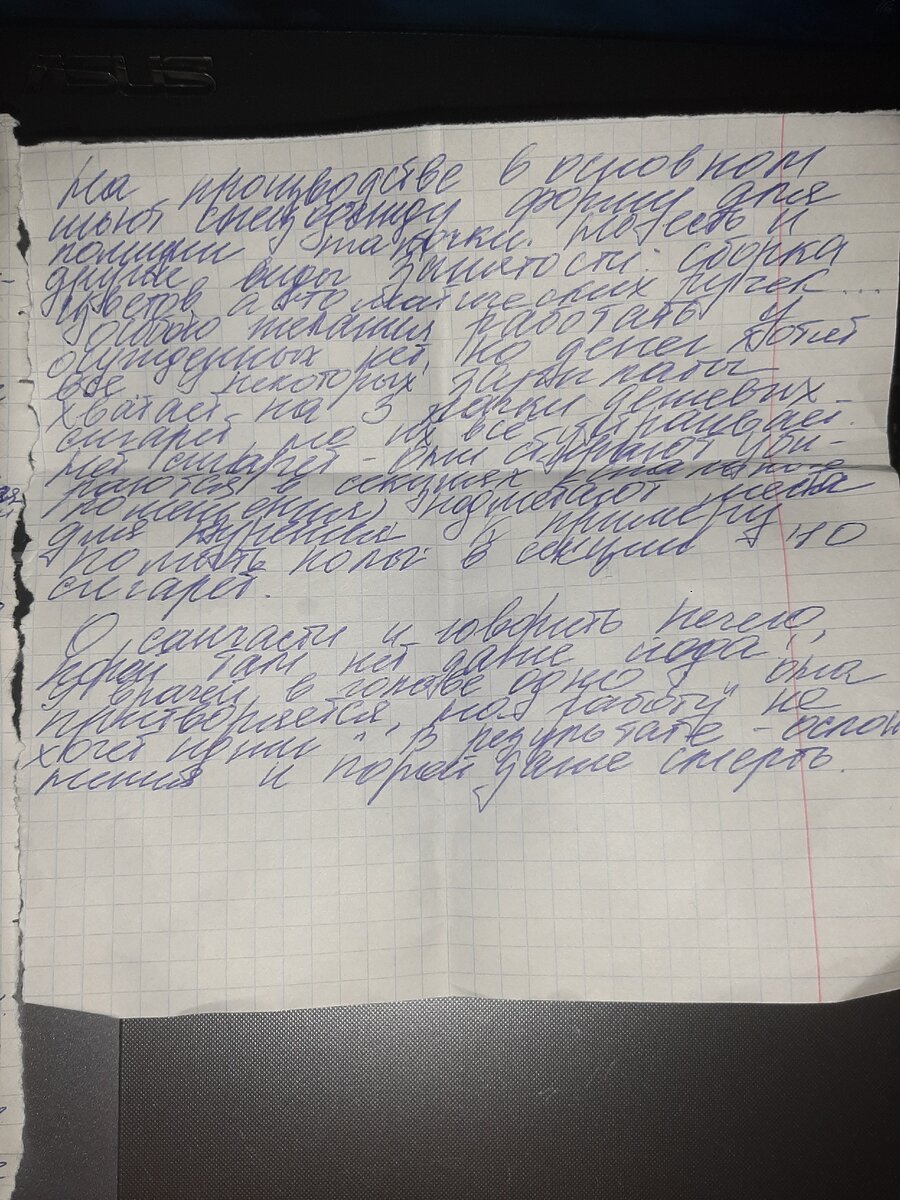 ASUS
На производстве в основном
шьют спецодежду форму для
полиции, тапочки. Но есть и
другие виды занятости: сборка
цветов, автоматических ручек...
Особого желания работать у
осужденных нет, но денег хотят
все. У некоторых зарплаты
хватает на 3 пачки дешевых
сигарет, но их все устраивает.
Нет сигарет - они стирают, уби-
раются в секциях
помещения, подметают места
для курения. К примеру
помыть полы в секции - 10
сигарет.
О санчасти и говорить нечего,
порой там нет даже йода!
У врачей в голове одно "он
притворяется, на работу не
хочет идти". В результате - ослож
нения и порой даже смерть.